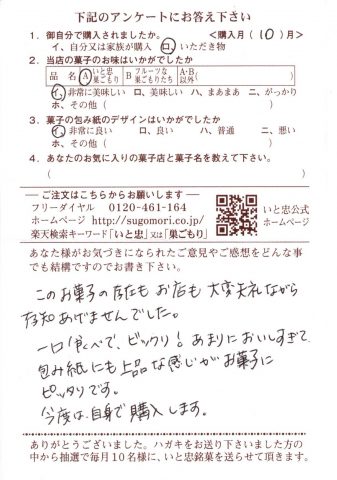 下記のアンケートにお答え下さい
1．御自分で購入されましたか。 <購入月(10)月>
イ、自分又は家族が購入 ロ、いただき物
2．当店の菓子のお味はいかがでしたか
品名 A いと忠巣ごもり B フルーツな巣ごもりたち A・B以外( )
イ、非常に美味しい ロ、美味しい ハ、まあまあ ニ、がっかり
ホ、その他( )
3．菓子の包み紙のデザインはいかがでしたか
イ、非常に良い ロ、良い ハ、普通 ニ、悪い
ホ、その他( )
4．あなたのお気に入りの菓子店と菓子名を教えて下さい。
( )
ご注文はこちらからお願いします
フリーダイヤル 0120-461-164
ホームページ http://sugomori.co.jp/
楽天検索キーワード「いと忠」又は「巣ごもり」
いと忠公式
ホームページ
あなた様がお気づきになられたご意見やご感想をどんな事
でも結構ですのでお書き下さい。
このお菓子の存在もお店も大変失礼ながら
存知あげませんでした。
一口食べて、ビックリ！あまりにおいしすぎて
包み紙にも上品な感じがお菓子に
ピッタリです。
今度は、自身で購入します。
ありがとうございました。ハガキをお送り下さいました方の
中から抽選で毎月10名様に、いと忠銘菓を送らせて頂きます。